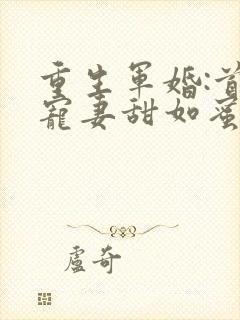 重生軍婚:首
寵妻甜如蜜
盧奇